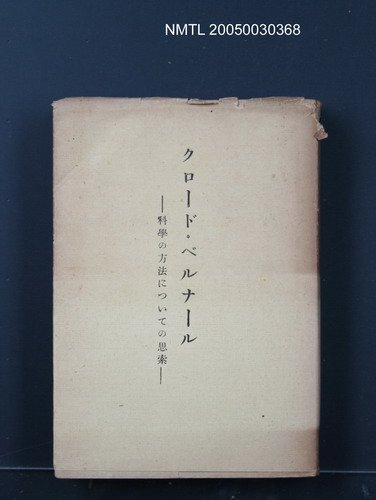 NMTL 20050030368
クロード・ベルナール
―科學の方法についての思索―